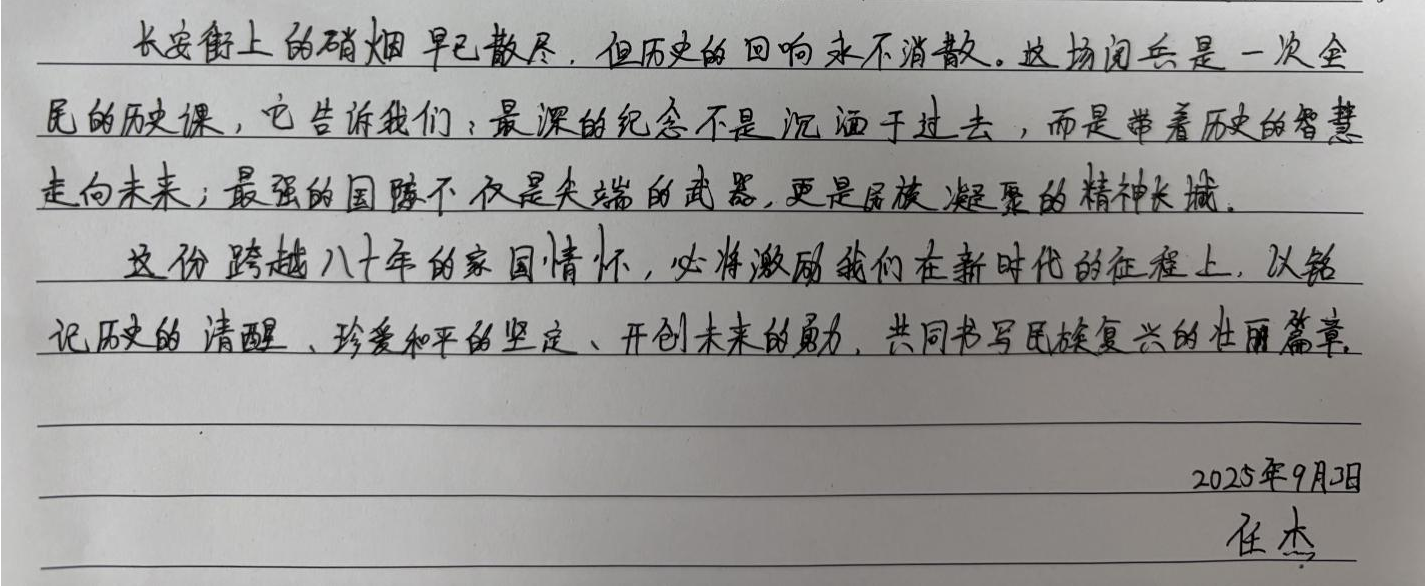 长安街上的硝烟早已散尽，但历史的回响永不消散。这场阅兵是一次全
民的历史课，它告诉我们：最深的纪念不是沉湎于过去，而是带着历史的智慧
走向未来；最强的国防不仅是尖端的武器，更是民族凝聚的精神长城。
这份跨越八十年的家国情怀，必将激励我们在新时代的征程上，以铭
记历史的清醒、珍爱和平的坚定、开创未来的勇力，共同书写民族复兴的壮丽篇章。
2025年9月3日
任杰